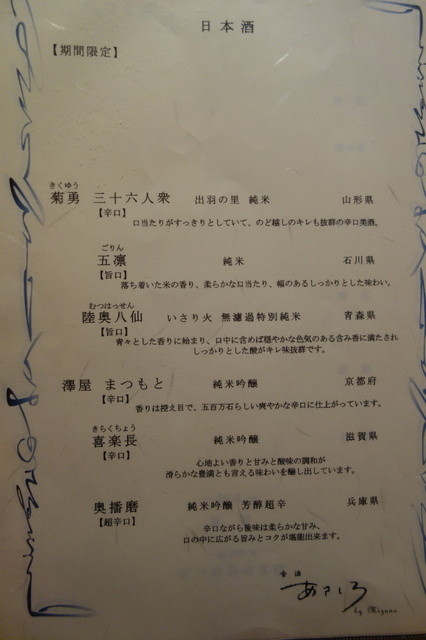 日本酒
【期間限定】
きくゆう
菊勇 三十六人衆 出羽の里 純米 山形県
【辛口】
口当たりがすっきりとしていて、のど越しのキレも抜群の辛口美酒。
ごりん
五凛 純米 石川県
【旨口】
落ち着いた米の香り、柔らかな口当たり、幅のあるしっかりとした味わい。
むつはっせん
陸奥八仙 いさり火 無濾過特別純米 青森県
【旨口】
青々とした香りに始まり、口中に含めば穏やかな色気のある含み香に満たされ
しっかりとした酸がキレ味抜群です。
澤屋 まつもと 純米吟醸 京都府
【辛口】
香りは控え目で、五百万石らしい爽やかな辛口に仕上がっています。
きらくちょう
喜楽長 純米吟醸 滋賀県
【辛口】
心地よい香りと甘みと酸味の調和が
滑らかな豊満とも言える味わいを醸し出しています。
奥播磨 純米吟醸 芳醇超辛 兵庫県
【超辛口】
辛口ながら後味は柔らかな甘み、
口の中に広がる旨みとコクが堪能出来ます。
by Mizuno